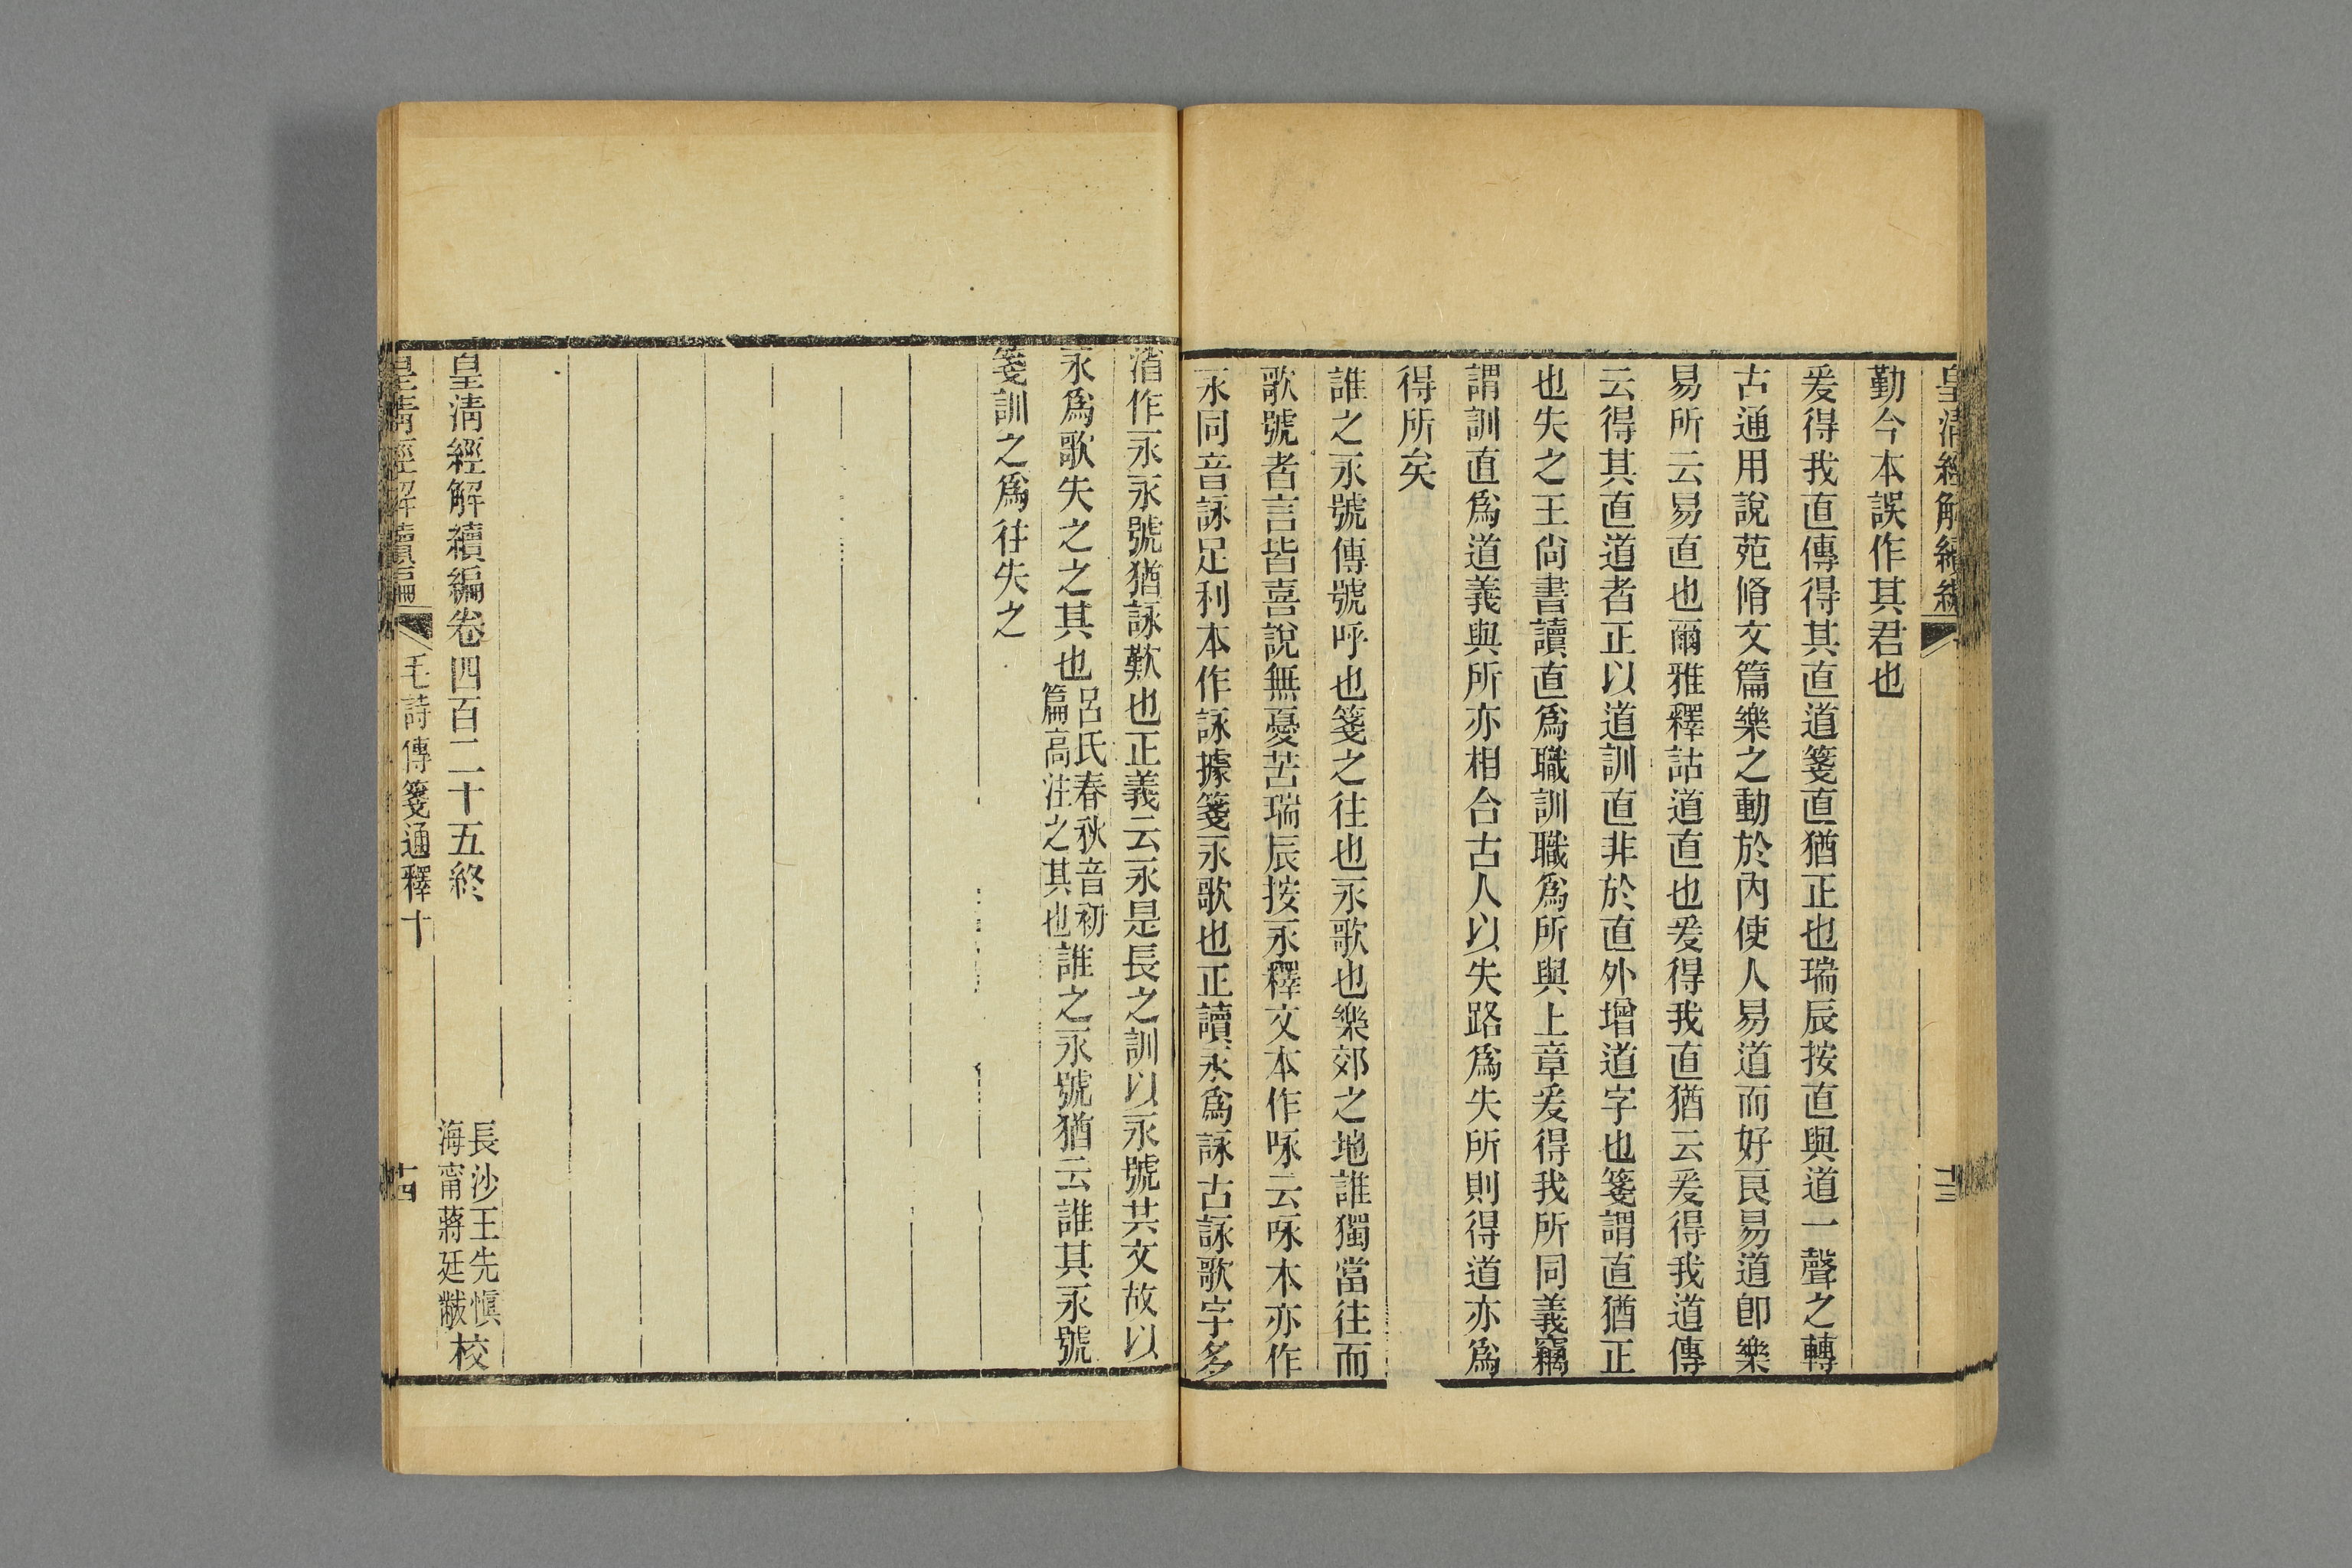 皇清經解續編
十三
勤今本誤作其君也
爰得我直傳得其直道箋直猶正也瑞辰按直與道一聲之轉
古通用說苑脩文篇樂之動於內使人易道而好良易道卽樂
易所云易直也爾雅釋詁道直也爰得我直猶云爰得我道傳
云得其直道者正以道訓直非於直外增道字也箋謂直猶正
也失之王尙書讀直爲職訓職爲所與上章爰得我所同義竊
謂訓直爲道義與所亦相合古人以失路爲失所則得道亦爲
得所矣
誰之永號傳號呼也箋之往也永歌也樂郊之地誰獨當往而
歌號者言皆喜說無憂苦瑞辰按永釋文本作咏云咏本亦作
永同音詠足利本作詠據箋永歌也正讀永爲詠古詠歌字多
渻作永永號猶詠歎也正義云永是長之訓以永號共文故以
永爲歌失之之其也
呂氏春秋音初
篇高注之其也
誰之永號猶云誰其永號
箋訓之爲往失之
皇清經解續編卷四百二十五終
長沙王先愼
海甯蔣廷黻
校
皇清經解續編
毛詩傳箋通釋十
十四